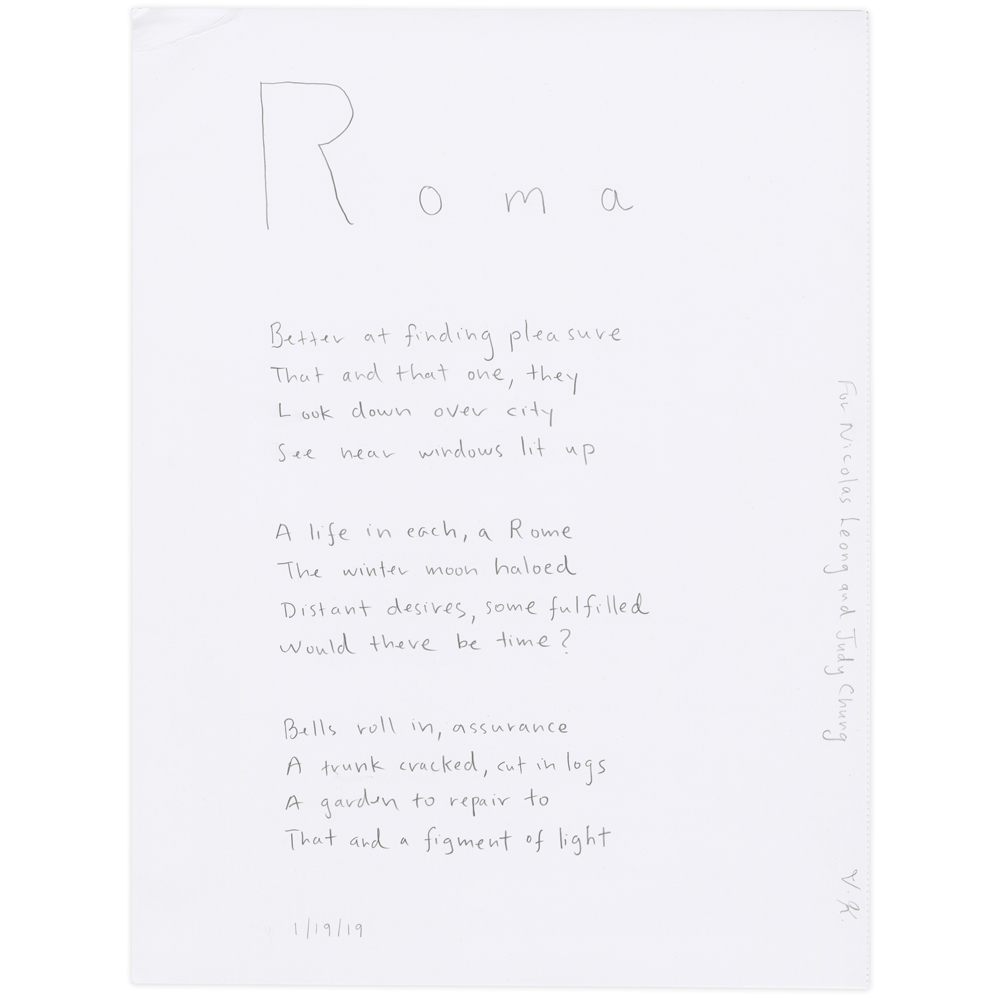 Roma
Better at finding pleasure
That and that one, they
Look down over city
See near windows lit up
A life in each, a Rome
The winter moon haloed
Distant desires, some fulfilled
Would there be time?
Bells roll in, assurance
A trunk cracked, cut in logs
A garden to repair to
That and a figment of light
1/19/19
For Nicolas Leong and Judy Chung
V. K.